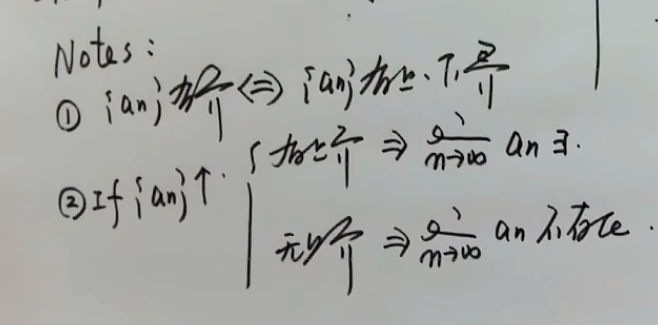 Notes:
① {an}有界⇔{an}有上、下界
② If {an}↑. { 有上界 ⇒ lim n→∞ an ∃.
无上界 ⇒ lim n→∞ an 不存在.